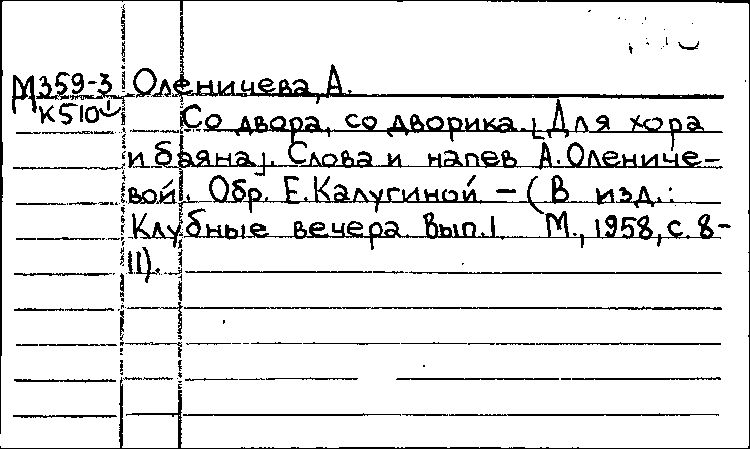 М359-3 Оленичева, А.
К510
Со двора, со дворика. [Для хора
и баяна]. Слова и напев А. Олениче-
вой. Обр. Е. Калугиной – (В изд.:
Клубные вечера. Вып.1. М., 1958, с. 8-
11).